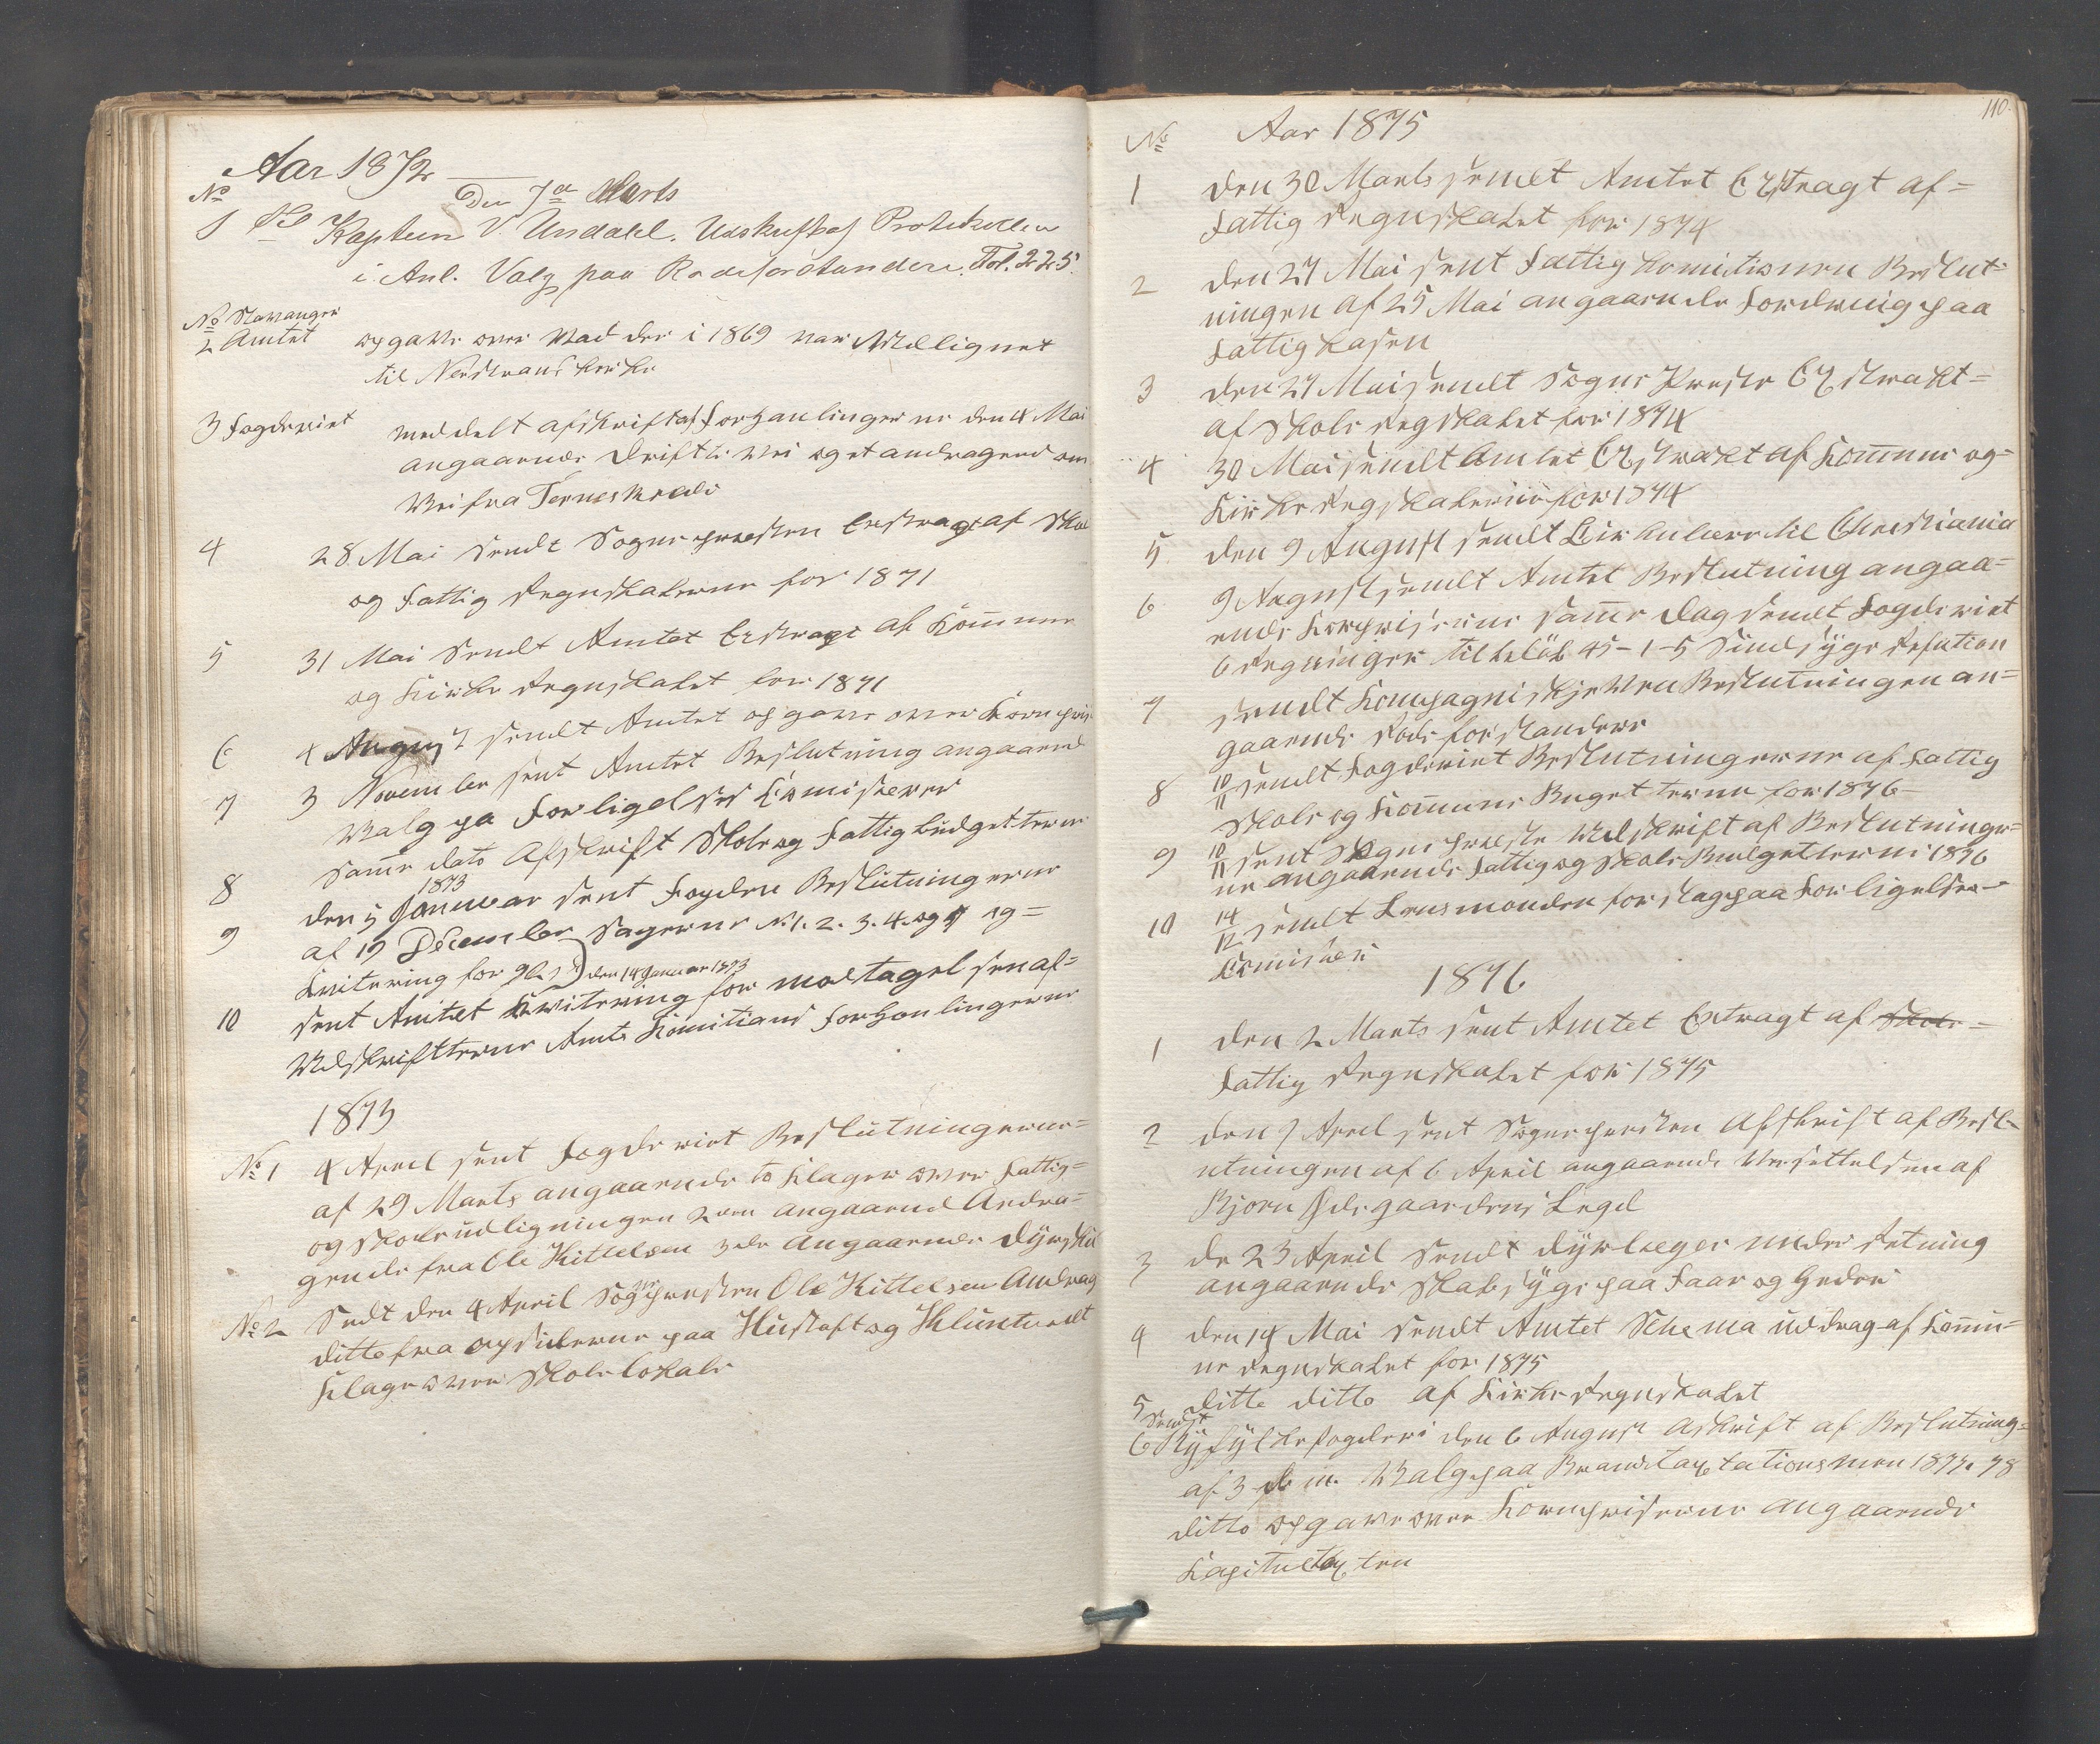 Aar 1872
No Den 7de Marts
1 Kaptein V. Undahl. Udskrift af Protokollen
i Anl. Valg paa Rodeforstandere. Fol. 225.
No Stavanger
2 Amtet opgave over hvad der i 1869 var udlignet
til Nerstrands kirke
3 Fogderiet meddelt afskrift af Forhanlinger ne den 4 Mai
angaaende Drifte vei og et andragend om
Vei fra
4 28 Mai sendt Sogne presten Exstragt af Skol
og Fattig Regnskaberne for 1871
5 31 Mai sendt Amtet Exstragt af Komune
og Kirke Regnskabet for 1871
6 4 August sendt Amtet opgave over Kornpris
7 3 November sent Amtet Beslutning angaaend
Valg pa Forligelses Komiserer
8 Samme dato Afskrift Skole og Fattig budgetterne
1873
9 den 5 Januar sent Fogden Beslutningerne
af 19 December Sagerne N 1. 2. 3. 4. og 5 og=
Kvitering for den 14 Januar 1873
10 sent Amtet Kvitering for modtagelsen af=
Udskriftterne Amts Komitians Forhanlingerne
1873
No 1 4 April sent Fogderiet Beslutningerne=
af 29 Marts angaaende to Klager over Fattig=
og Skoleudligningen 2den angaaend Andra=
gende fra Ole Kittelsen 3de angaaende
No 2 Sedt den 4 April Sognepresten Ole Kittelsen Andrag
ditto fra opsiderne paa Hustoft og
Klage over Skole lokale
110.
No Aar 1875
1 den 30 Marts sendt Amtet Exstragt af=
Fattig Regnskabet for 1874
2 den 27 Mai sent Fattig komitisonen Beslut=
ningen af 25 Mai angaaende Fordring paa
Fattig kasen
3 den 27 Mai sendt Sogne Preste Exstrakt=
af Skole Regskabet for 1874
4 30 Mai sendt Amtet Exstrakt af Komune og=
Kirke Regskaberne for 1874
5 den 9 August sendt Cirkulære til Christiania
6 9 August sendt Amtet Beslutning angaa=
ende Kornpriserne samme dag sendt Fogderiet
6 Regninger til beløb 45-1-5 Sindsyge Refution
7 sendt Kompagnisjefen Beslutningen an=
gaaende Rodeforstandere
8 10/11 sendt Fogderiet Beslutningerne af Fattig
Skole og Komune Buget terne for 1876
9 10/11 sent Sogne preste Udskrift af Beslutninger=
ne angaaende Fattig og Skole Budgetterne 1876
10 14/12 sendt Lensmanden forslag paa Forligelses=
Komisær
1876
1 den 2 Marts sent Amtet Extragt af Skole=
Fattig Regnskabet for 1875
2 den 7 April sent Sognepresten Afskrift af Besl=
utningen af 6 April angaaende Versettelsen af
Bjørn Ødegaardens Legd
3 de 23 April sendt dyrlæge underretning
angaaende Skabsyge paa Faar og Geder
4 den 14 Mai sendt Amtet Schema uddrag af Komu=
ne Regnskabet for 1875
5 ditto ditto af Kirke Regnskabet
Sendt
6 Ryfylke fogderi den 6 August Afskrift af Beslutning=
af 3 d. m. Valg paa Brandtaxtationsmen 1877. 78
ditto opgave over Kornpriserne angaaende
Kapitultaxten